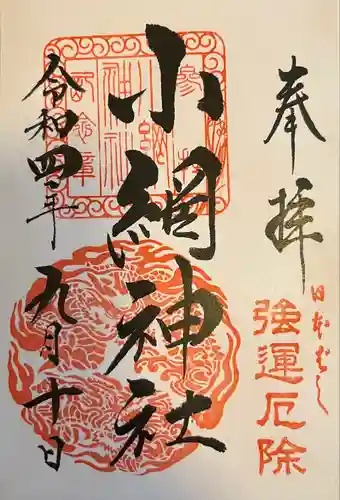 奉拝
日本ばし
強運厄除
小網神社
令和四年
九月十日